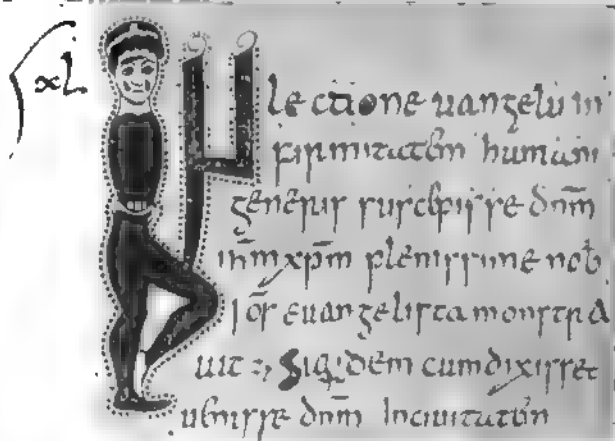 xl
In lectione uangelii in
firmitatem humani
generis suscepisse dnm
inm xpm plenissime nob
ios euangelista monstra
uit Siquidem cum dixisset
uenisse dnm In ciuitatem